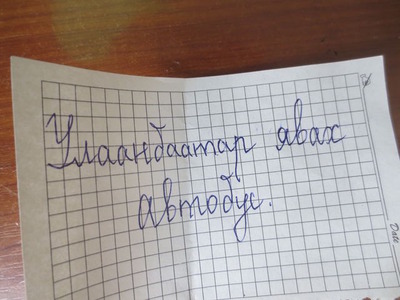 Улаанбаатар явах
автобус.
Date